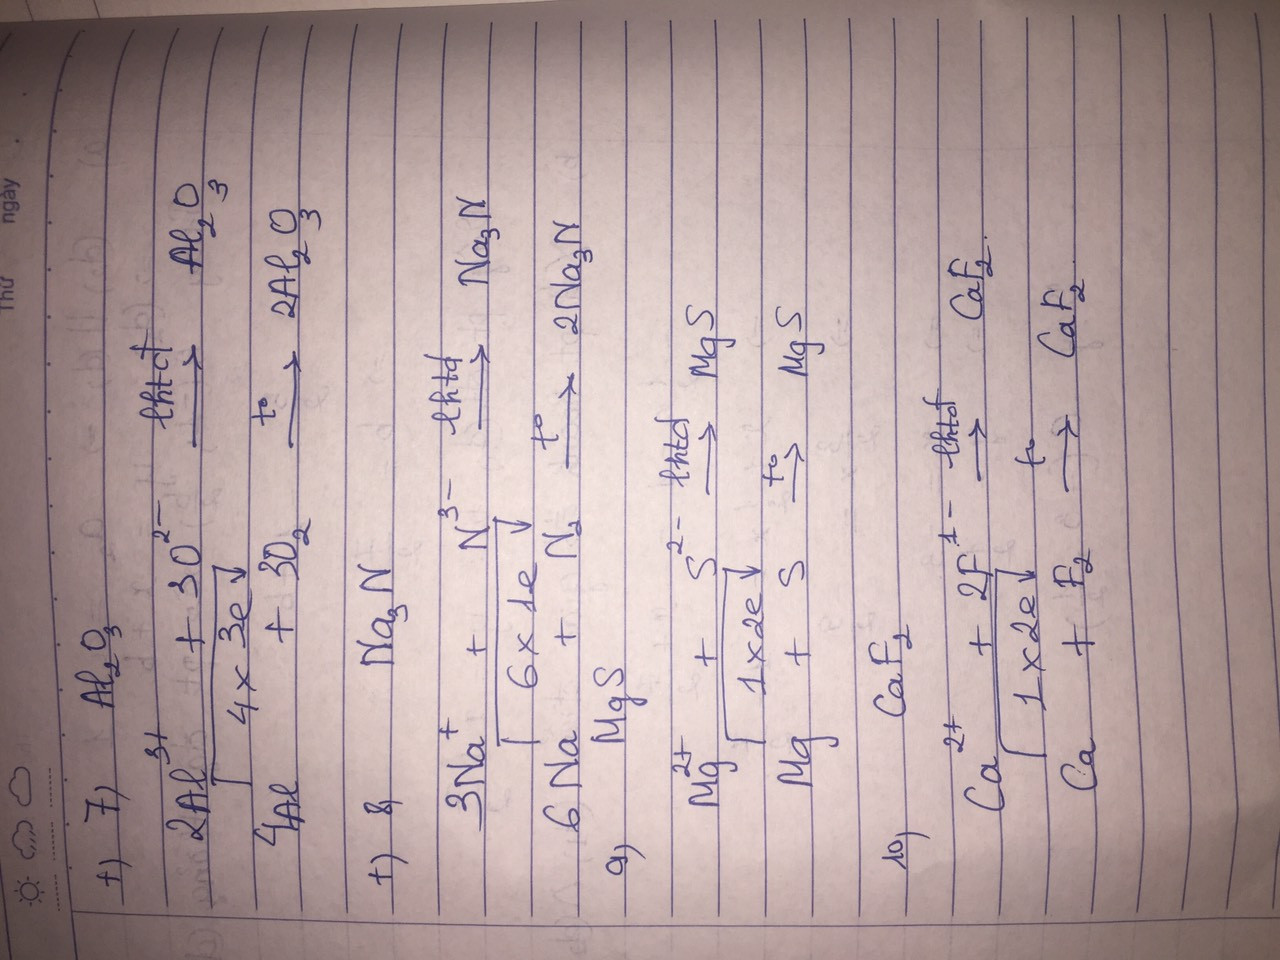 Thứ
ngày
+) 7) Al₂O₃
2Al³⁺ + 3O²⁻ lhtđ → Al₂O₃
4 x 3e
4Al + 3O₂ t° → 2Al₂O₃
+) 8) Na₃N
3Na⁺ + N³⁻ lhtđ → Na₃N
6 x 1e
6Na + N₂ t° → 2Na₃N
9) MgS
Mg²⁺ + S²⁻ lhtđ → MgS
1 x 2e
Mg + S t° → MgS
10) CaF₂
Ca²⁺ + 2F¹⁻ lhtđ → CaF₂.
1 x 2e
Ca + F₂ t° → CaF₂.